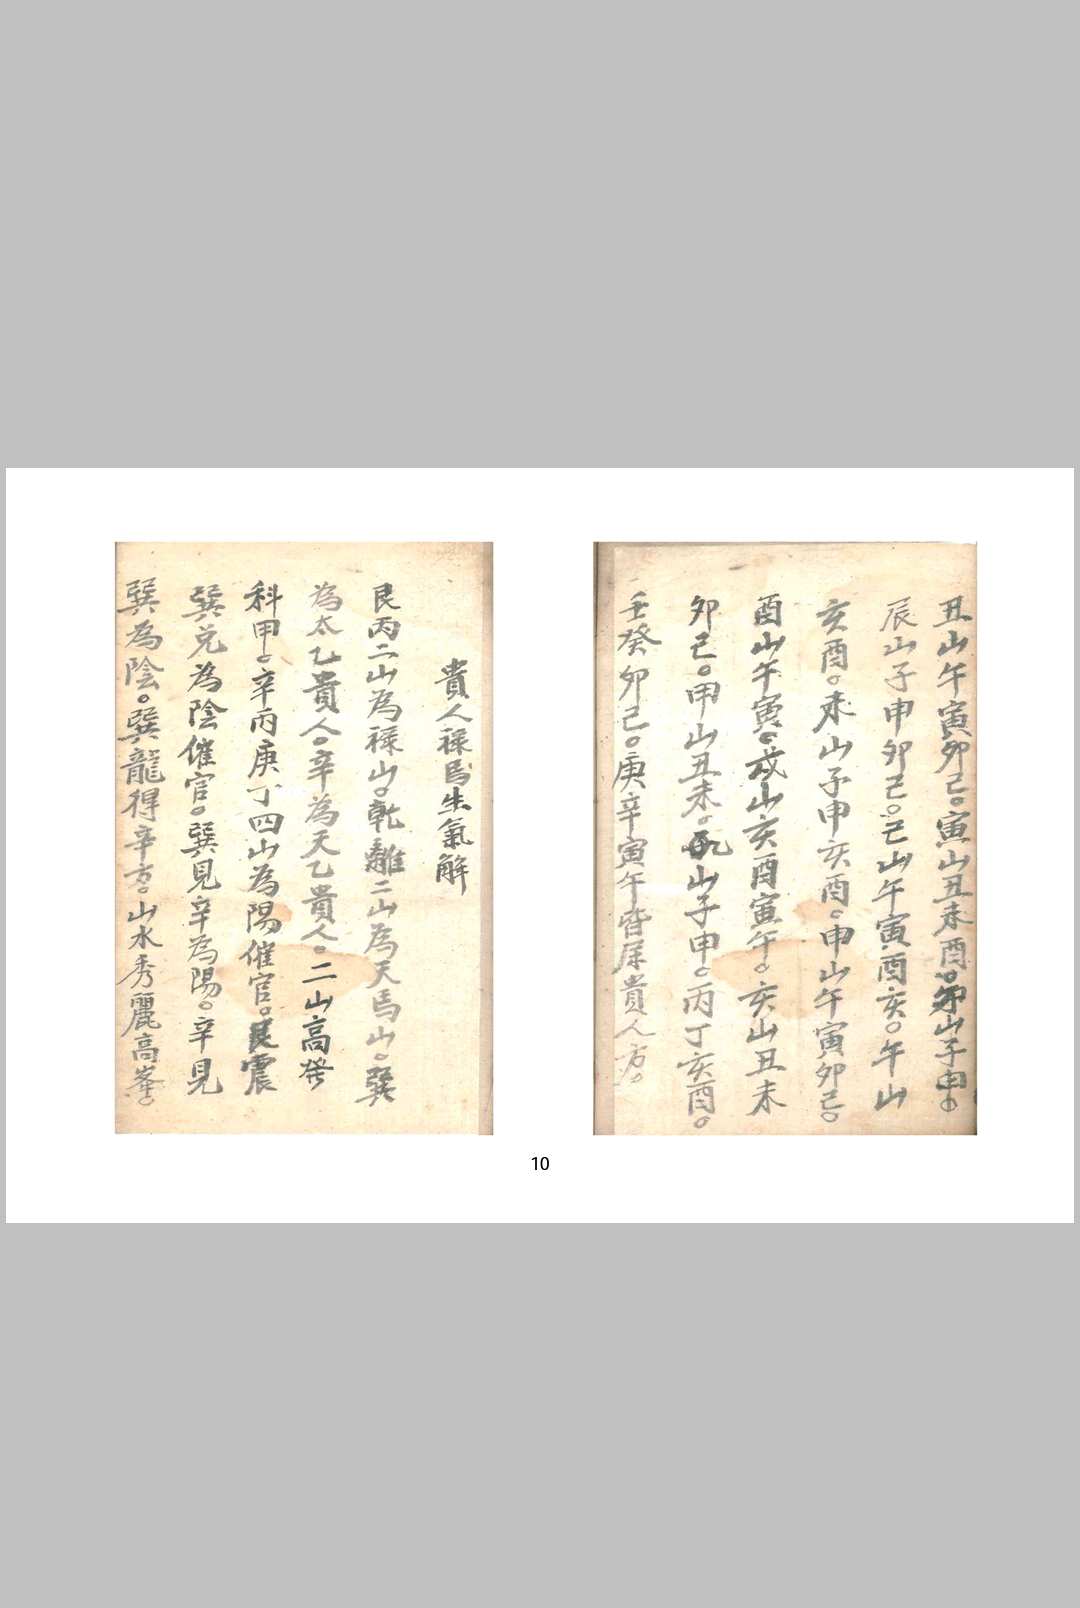 丑山午寅卯己。寅山丑未酉。卯山子申。
辰山子申卯己。己山午寅酉亥。午山
亥酉。未山子申亥酉。申山午寅卯己。
酉山午寅。戌山亥酉寅午。亥山丑未
卯己。甲山丑未。山子申。丙丁亥酉。
壬癸卯己。庚辛寅午皆屋貴人方。
貴人祿馬生氣解
艮丙二山為祿山。乾離二山為天馬山。巽
為太乙貴人。辛為天乙貴人。二山高發
科甲。辛丙庚丁四山為陽催官。艮震
巽兌為陰催官。巽見辛為陽。辛見
巽為陰。巽龍得辛方。山水秀麗高峯。
10